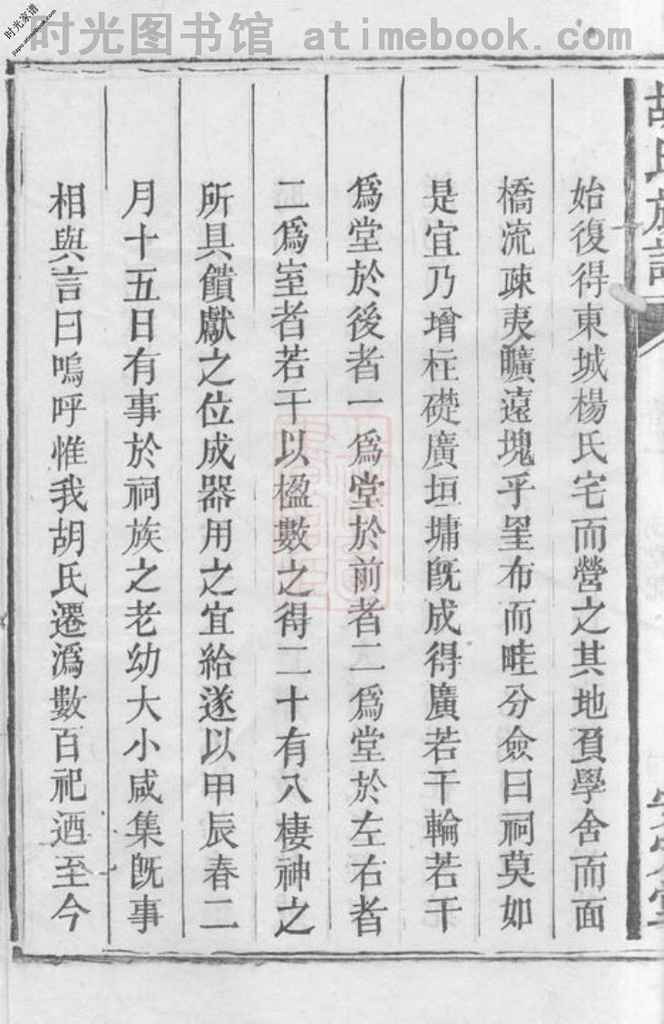 时光家谱
jiapu.atimebook.com
时光图书馆 atimebook.com
胡氏族譜
始復得東城楊氏宅而營之其地負學舍而面
橋流疎夷曠遠塊乎罣布而畦分僉曰祠莫如
是宜乃增柱礎廣垣墉旣成得廣若干輪若干
爲堂於後者一爲堂於前者二爲堂於左右者
二爲室者若干以楹數之得二十有八棲神之
所具饋獻之位成器用之宜給遂以甲辰春二
月十五日有事於祠族之老幼大小咸集旣事
相與言曰嗚呼惟我胡氏遷潙數百祀迺至今